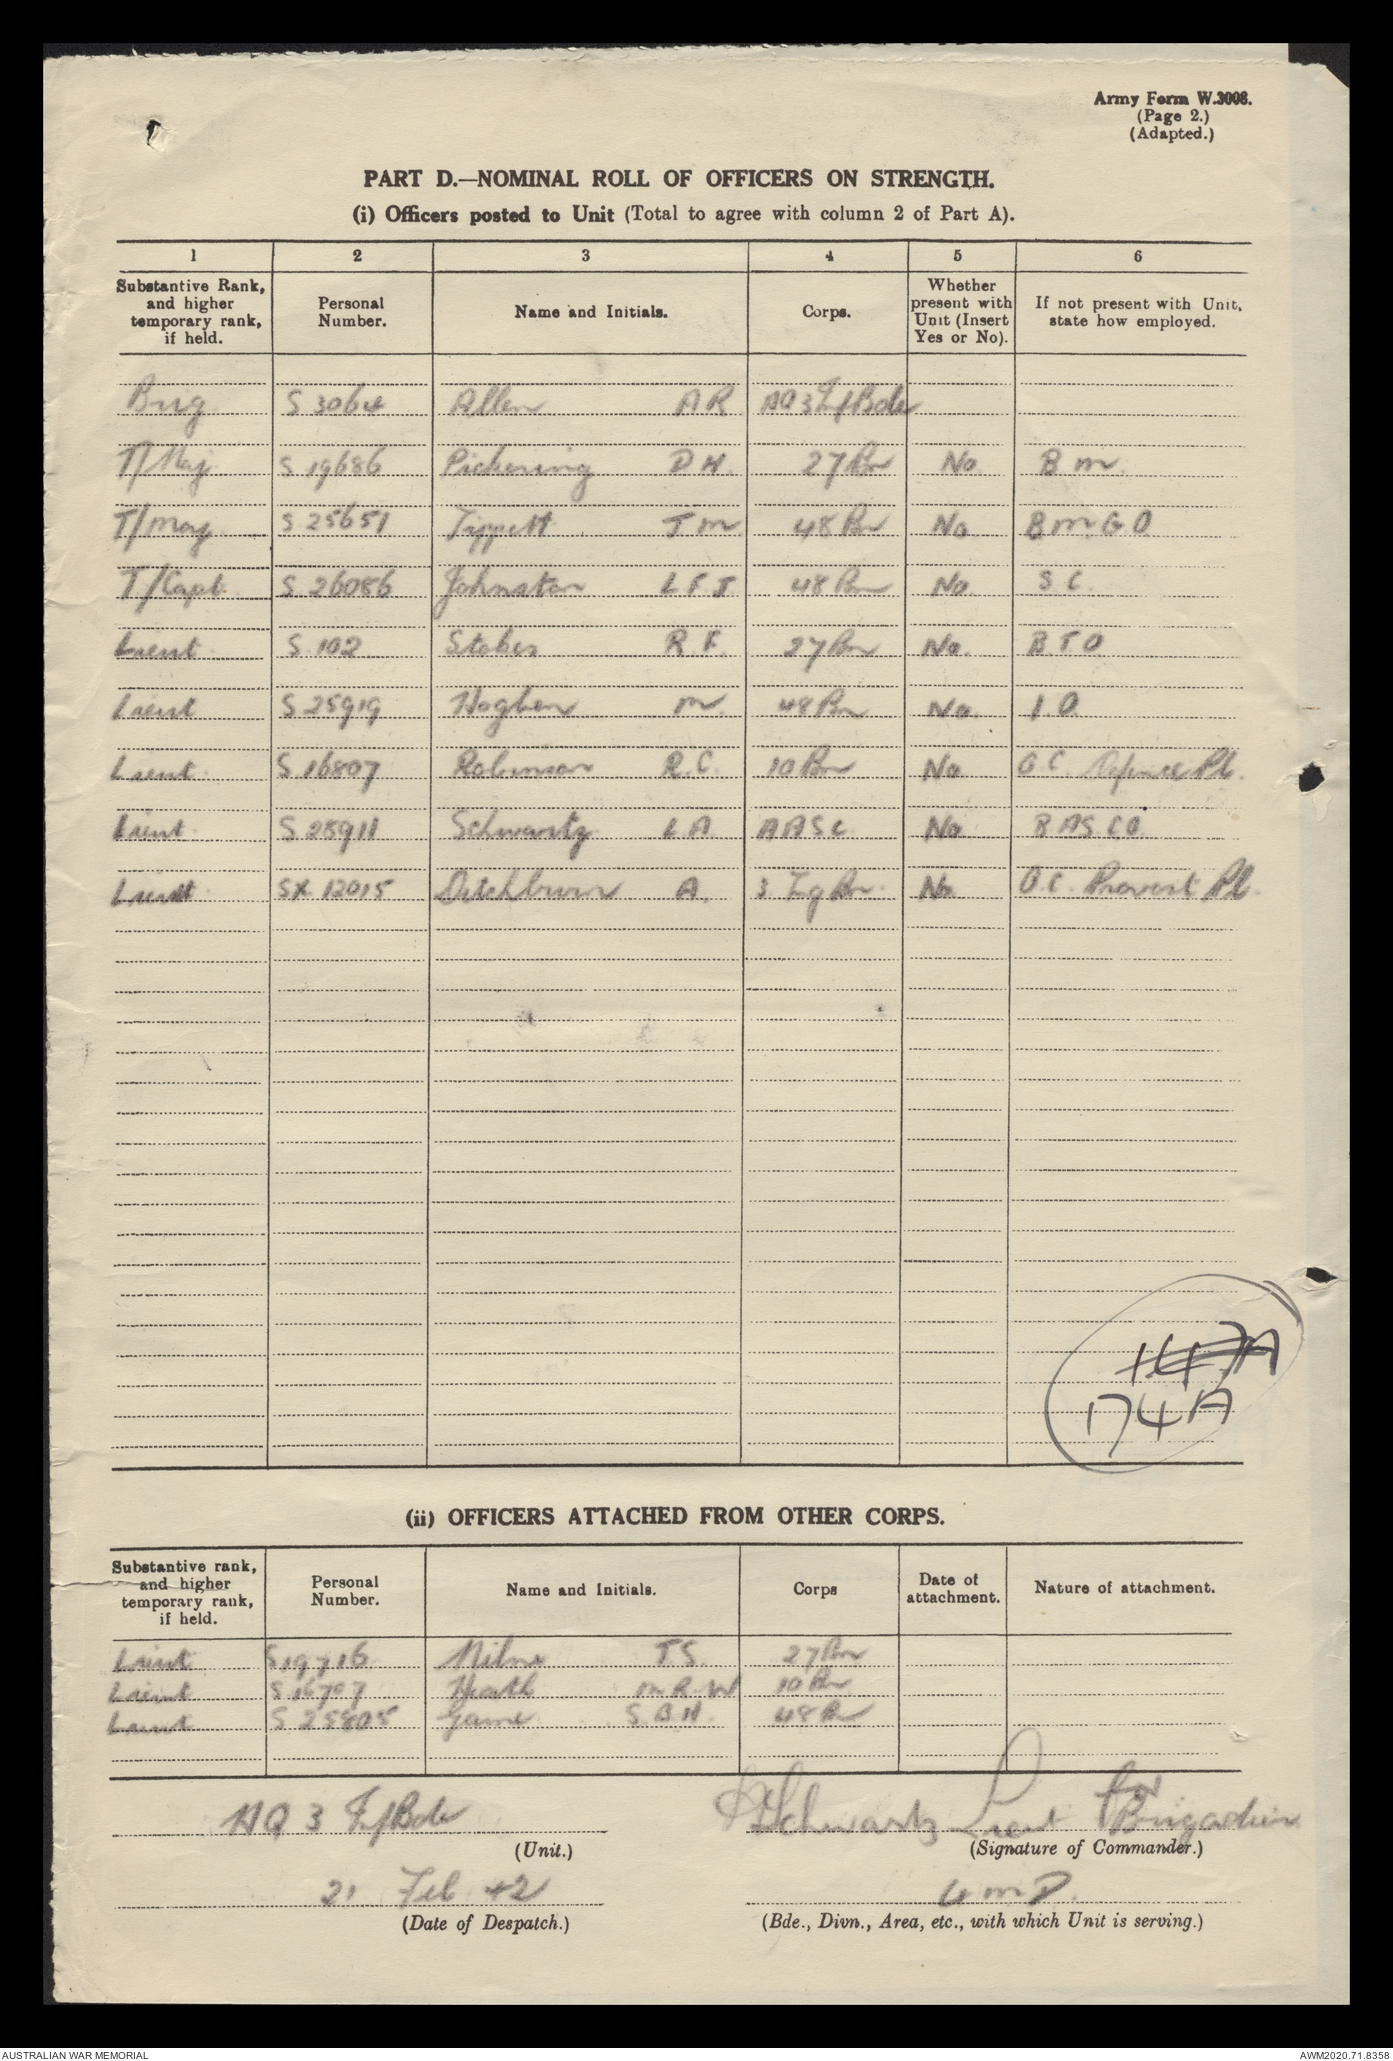 Army Form W.3008.
(Page 2.)
(Adapted.)
PART D.—NOMINAL ROLL OF OFFICERS ON STRENGTH.
(i) Officers posted to Unit (Total to agree with column 2 of Part A).
1 2 3 4 5 6
Substantive Rank, and higher temporary rank, if held. Personal Number. Name and Initials. Corps. Whether present with Unit (Insert Yes or No). If not present with Unit, state how employed.
Brig S 3064 Allen A R HQ 3 Inf Bde
T/Maj S 19686 Pickering D H. 27 Bn No B M.
T/Maj S 25651 Tippett J M 48 Bn No B M G O
T/Capt S 26086 Johnston L F J 48 Bn No S C.
Lieut S 102 Stokes R F. 27 Bn No. B T O
Lieut S 25919 Hogben M. 48 Bn No. I O.
Lieut S 16807 Robinson R.C. 10 Bn No O.C. Defence Pl.
Lieut S 25911 Schwartz L A. AASC No B AS C O.
Lieut SX 12015 Ditchburn A. 3 No. O.C. Provost Pl.
147A
174A
(ii) OFFICERS ATTACHED FROM OTHER CORPS.
Substantive rank, and higher temporary rank, if held. Personal Number. Name and Initials. Corps Date of attachment. Nature of attachment.
Lieut S19716 Milne J.S. 27 Bn
Lieut S16707 Heath M R W 10 Bn
Lieut S 25805 Game S.B.H. 48 Bn
HQ 3 Inf Bde Schwartz Lieut for Brigadier
(Unit.) (Signature of Commander.)
21 Feb 42 4 M D.
(Date of Despatch.) (Bde., Divn., Area, etc., with which Unit is serving.)
AUSTRALIAN WAR MEMORIAL AWM2020.71.8358